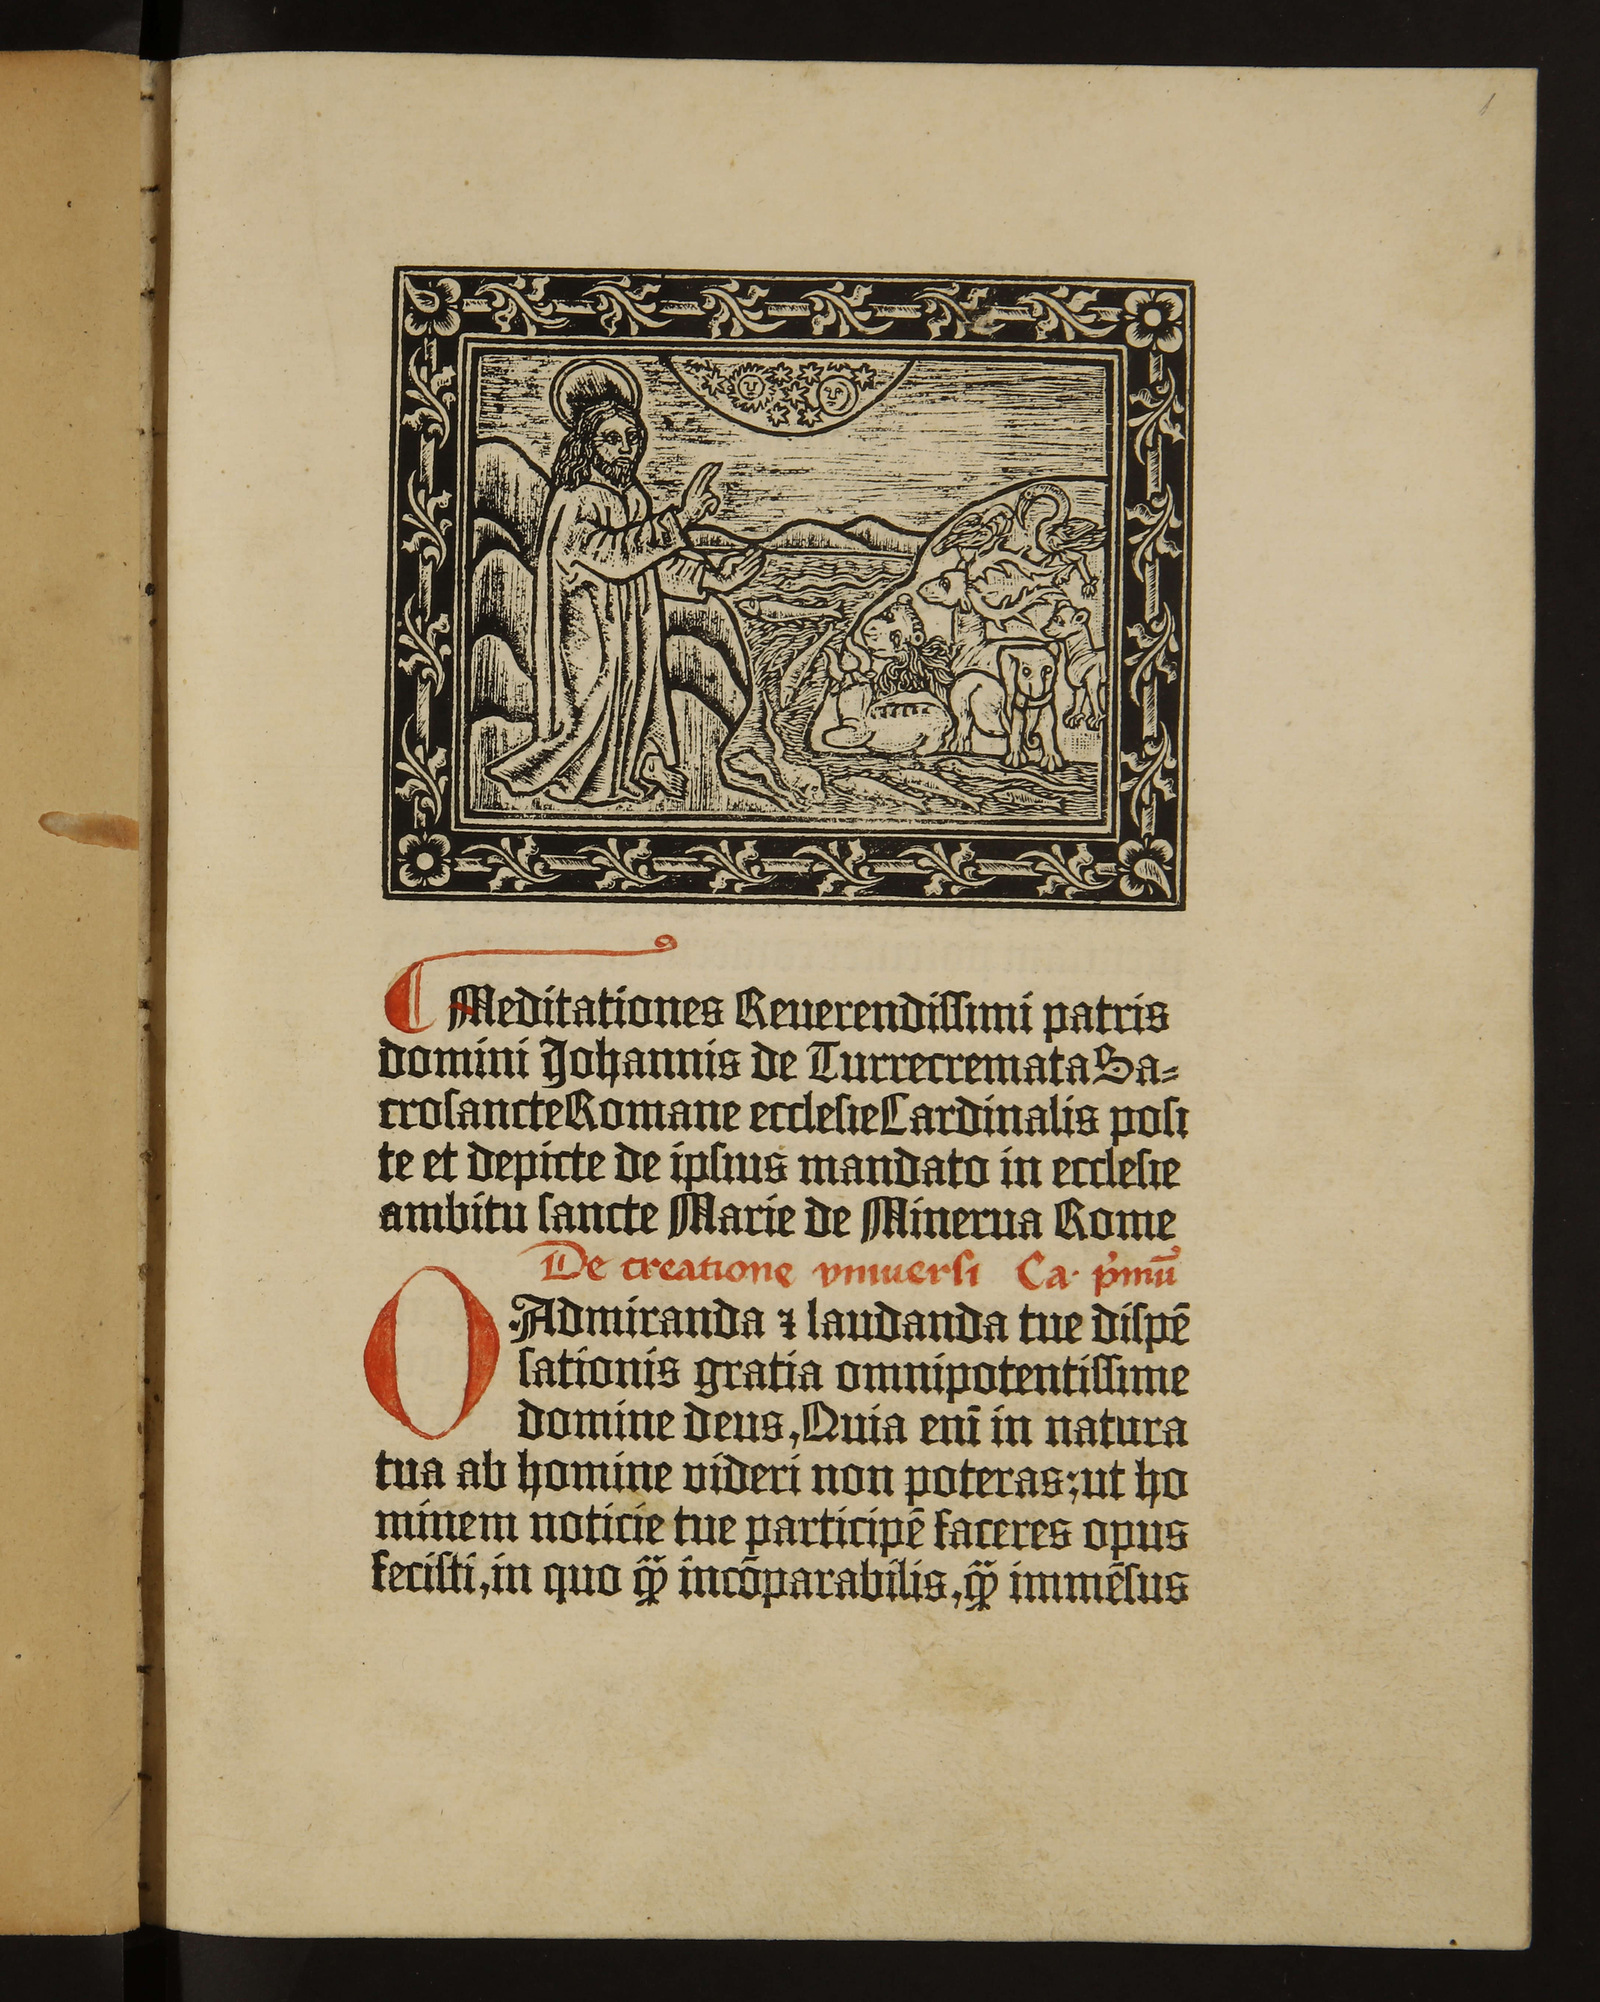 Meditationes Reuerendiſſimi patris
domini Johannis de Turrecremata Sa⸗
croſancte Romane eccleſie Cardinalis poſi
te et depicte de ipſius mandato in eccleſie
ambitu ſancte Marie de Minerua Rome
De creatione vniuerſi Ca· pͥmū
O Admiranda ⁊ laudanda tue diſpē
ſationis gratia omnipotentiſſime
domine deus, Quia enī in natura
tua ab homine videri non poteras; ut ho
minem noticie tue participē faceres opus
feciſti, in quo qͣ̈ꝫ incōparabilis, qͣ̈ꝫ immēſus